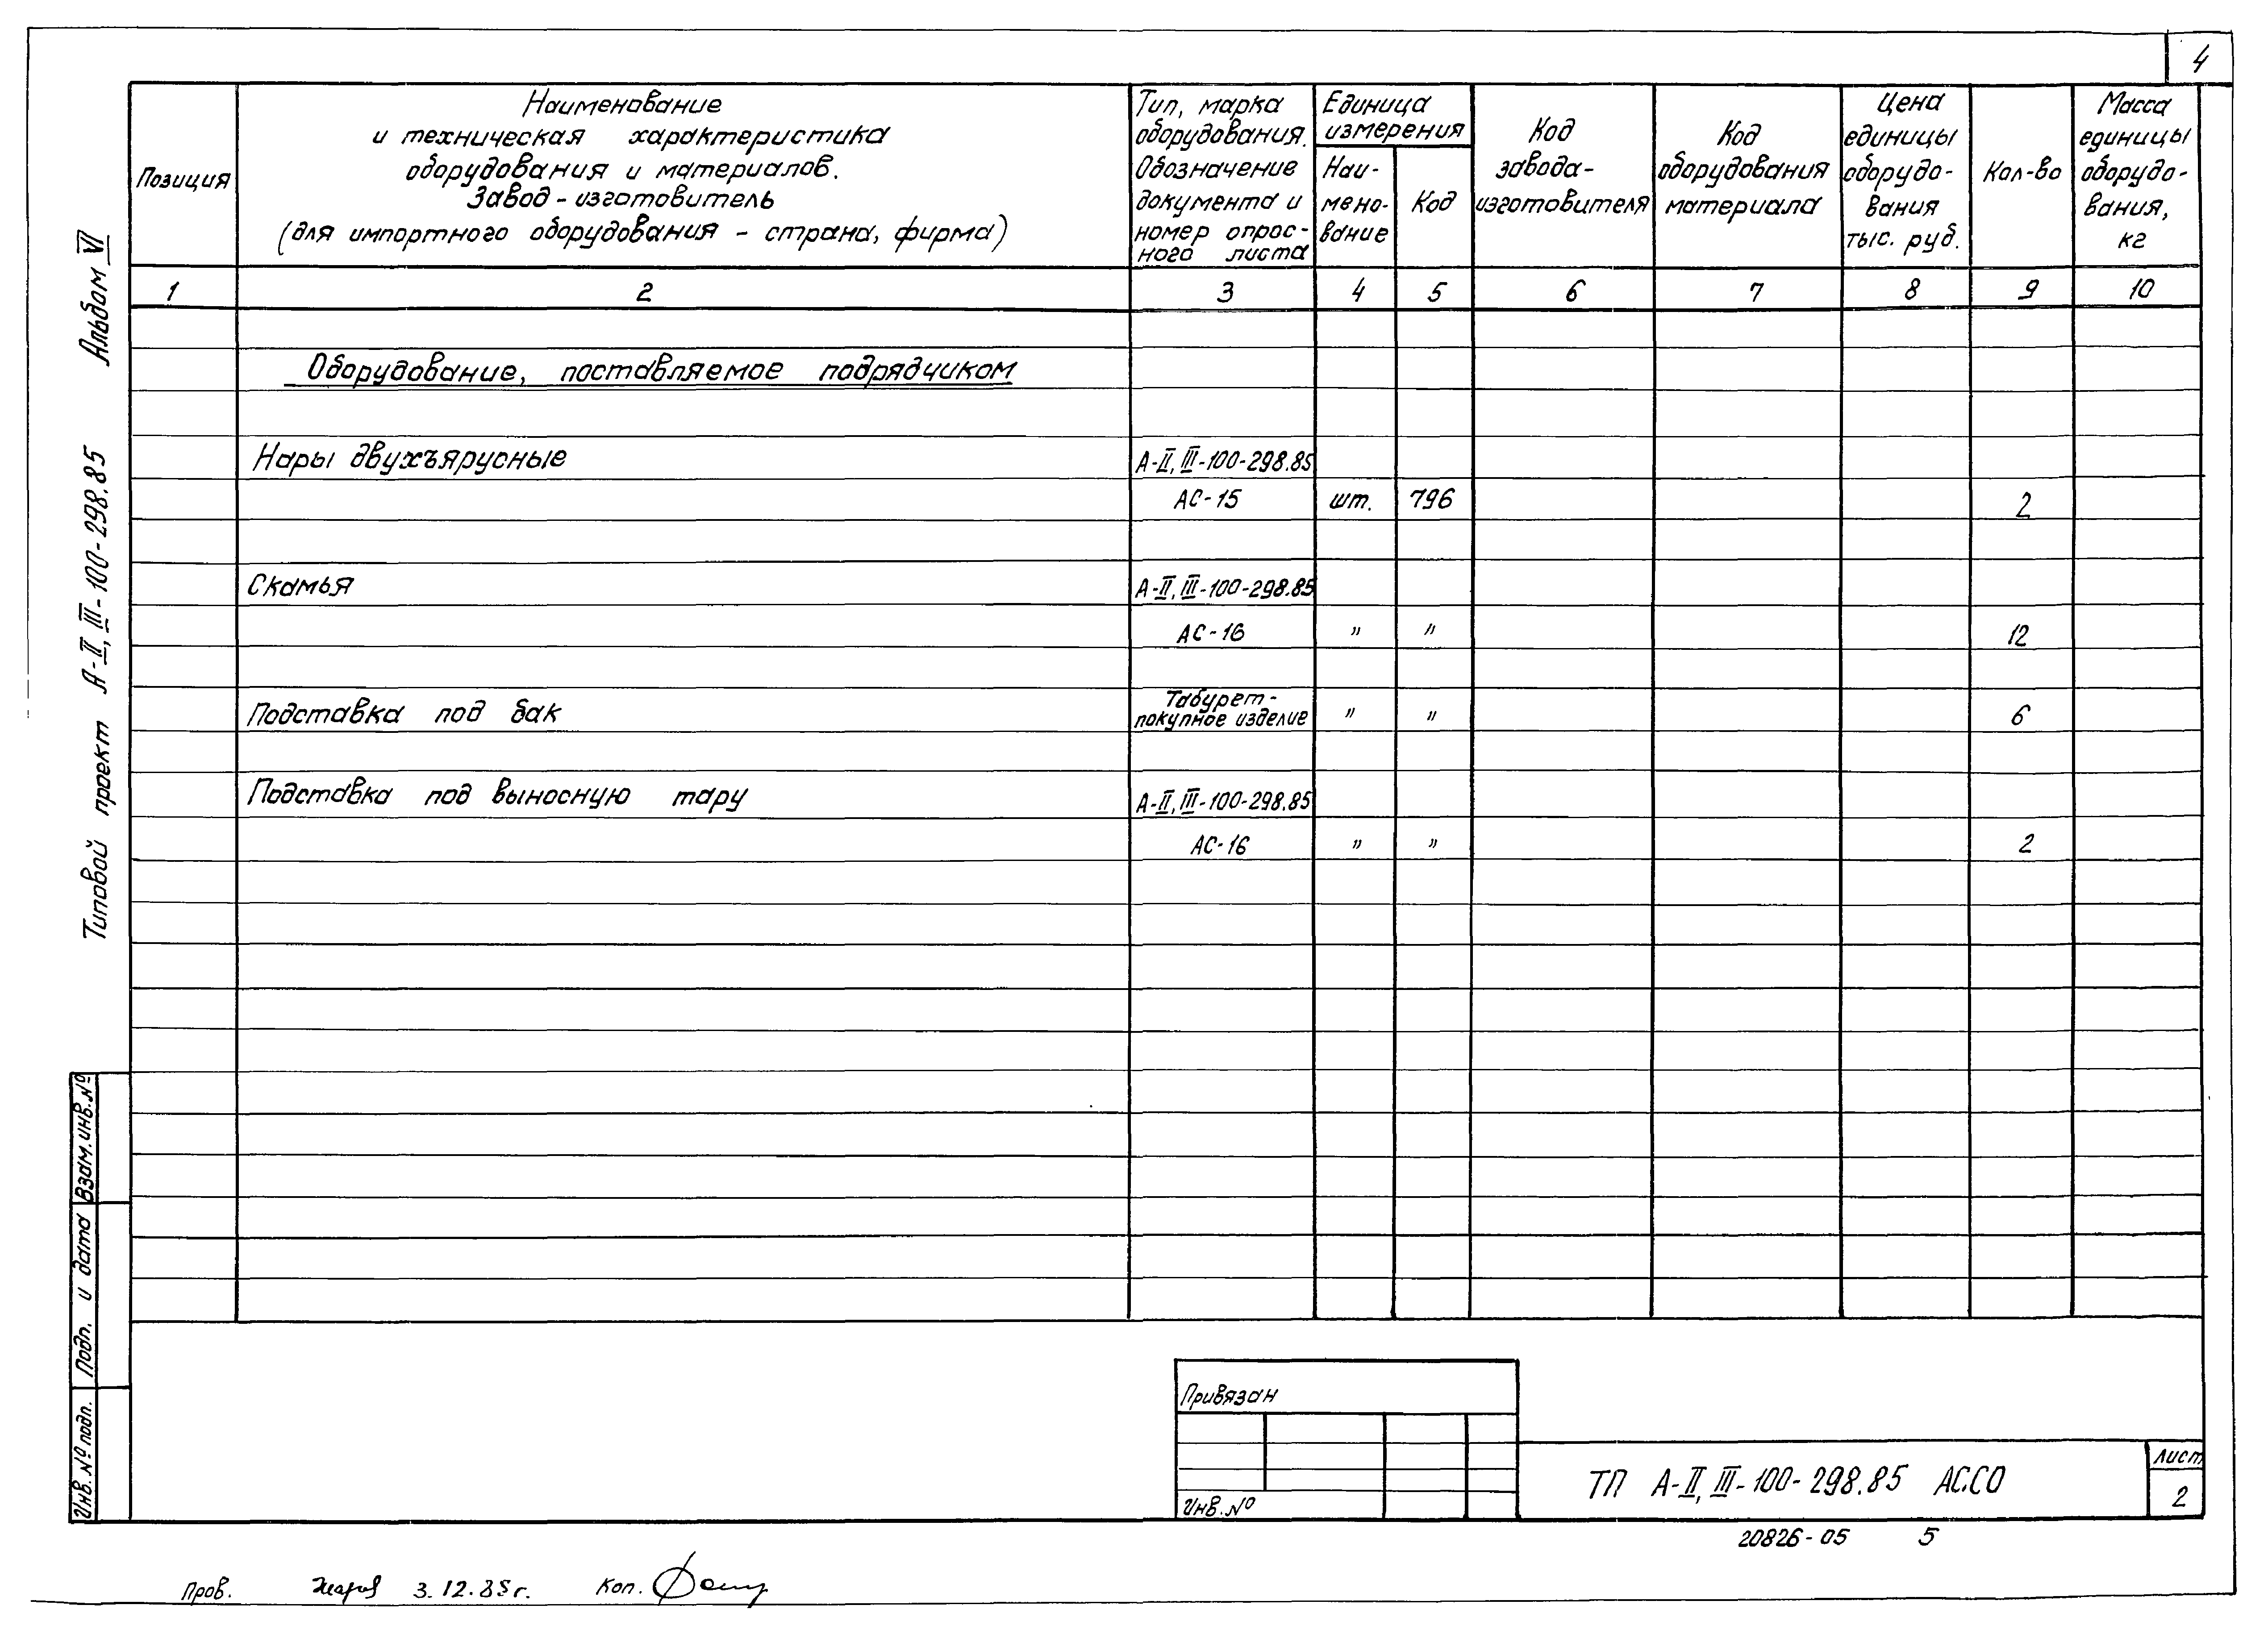 4
Позиция
Наименование
и техническая характеристика
оборудования и материалов.
Завод-изготовитель
(для импортного оборудования - страна, фирма)
Тип, марка
оборудования.
Обозначение
документа и
номер опрос-
ного листа
Единица
измерения
Наи-
мено-
вание
Код
Код
завода-
изготовителя
Код
оборудования
материала
Цена
единицы
оборудо-
вания
тыс. руб.
Кол-во
Масса
единицы
оборудо-
вания,
кг
1 2 3 4 5 6 7 8 9 10
Оборудование, поставляемое подрядчиком
Нары двухъярусные А-II, III-100-298.85
АС-15 шт. 796 2
Скамья А-II, III-100-298.85
АС-16 " " 12
Табурет-
Подставка под бак покупное изделие " " 6
Подставка под выносную тару А-II, III-100-298.85
АС-16 " " 2
Типовой проект А-II, III-100-298.85 Альбом VI
Взам.инв.№
Подп. и дата
Инв.№подп.
Привязан
Инв.№
ТП А-II, III-100-298.85 АС.СО
Лист
2
20826-05 5
Пров. 3.12.85г. Коп.